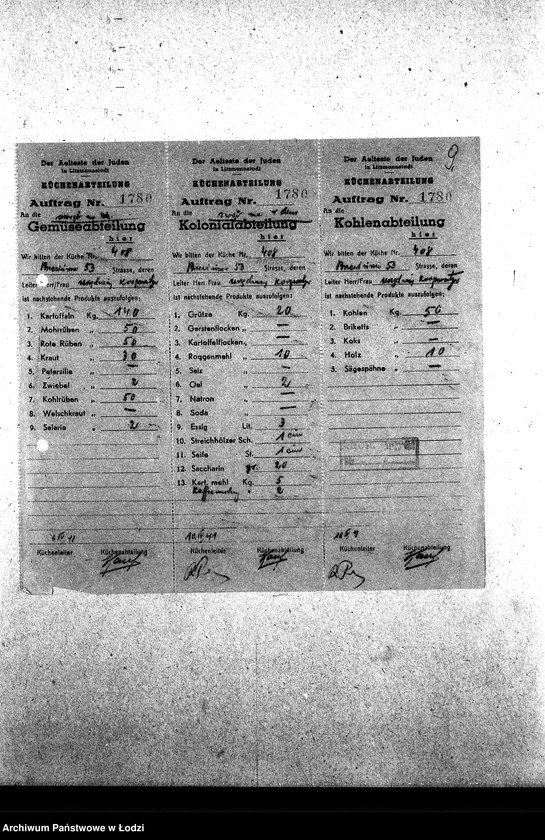 9
Der Aelteste der Juden
in Litzmannstadt
KÜCHENABTEILUNG
Auftrag Nr. 1780
An die
Gemüseabteilung
hier
Wir bitten der Küche Nr. 408
53 Strasse, deren
Leiter Herr/Frau
ist nachstehende Produkte auszufolgen:
1. Kartoffeln Kg. 140
2. Mohrrüben „ 50
3. Rote Rüben „ 50
4. Kraut „ 30
5. Petersilie „ —
6. Zwiebel „ 2
7. Kohlrüben „ 50
8. Welschkraut „ —
9. Selerie „ 2
Küchenleiter Küchenabteilung
Der Aelteste der Juden
in Litzmannstadt
KÜCHENABTEILUNG
Auftrag Nr. 1780
An die
Kolonialabteilung
hier
Wir bitten der Küche Nr. 408
53 Strasse, deren
Leiter Herr/Frau
ist nachstehende Produkte auszufolgen:
1. Grütze Kg. 20
2. Gerstenflocken „ —
3. Kartoffelflocken „ —
4. Roggenmehl „ 10
5. Salz „ —
6. Oel „ 2
7. Natron „ —
8. Soda „ —
9. Essig Lit. 3
10. Streichhölzer Sch.
11. Seife St.
12. Saccharin gr. 20
13 Kart. mehl Kg. 5
„ 2
Küchenleiter Küchenabteilung
Der Aelteste der Juden
in Litzmannstadt
KÜCHENABTEILUNG
Auftrag Nr. 1780
An die
Kohlenabteilung
hier
Wir bitten der Küche Nr. 408
53 Strasse, deren
Leiter Herr/Frau
ist nachstehende Produkte auszufolgen:
1. Kohlen Kg. 50
2. Briketts „ —
3. Koks „ —
4. Holz „ 10
5. Sägespähne „ —
Küchenleiter Küchenabteilung
Archiwum Państwowe w Łodzi